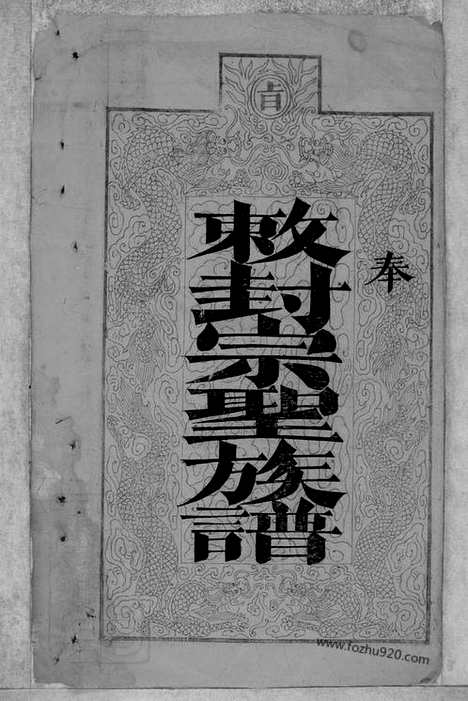 貞
奉
敕封宗聖族譜
www.fozhu920.com